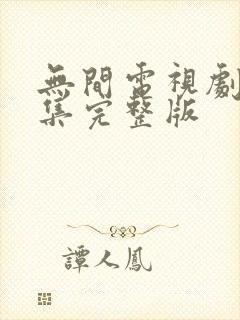 無間電視劇
集完整版
譚人鳳